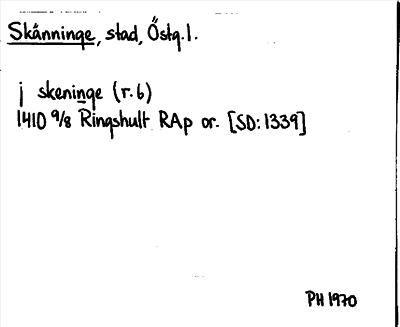 Skänninge, stad, Östg.l.
j skeninge (r.6)
1410 9/8 Ringshult RAp or. [SD:1339]
PH 1970